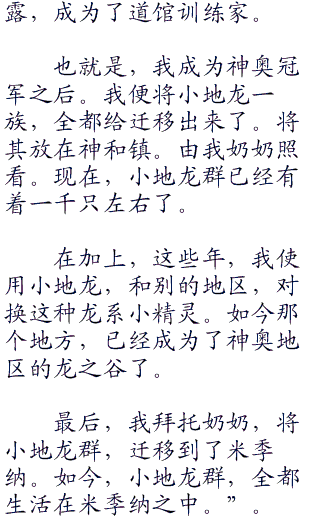 露，成为了道馆训练家。
也就是，我成为神奥冠
军之后。我便将小地龙一
族，全都给迁移出来了。将
其放在神和镇。由我奶奶照
看。现在，小地龙群已经有
着一千只左右了。
在加上，这些年，我使
用小地龙，和别的地区，对
换这种龙系小精灵。如今那
个地方，已经成为了神奥地
区的龙之谷了。
最后，我拜托奶奶，将
小地龙群，迁移到了米季
纳。如今，小地龙群，全都
生活在米季纳之中。”。